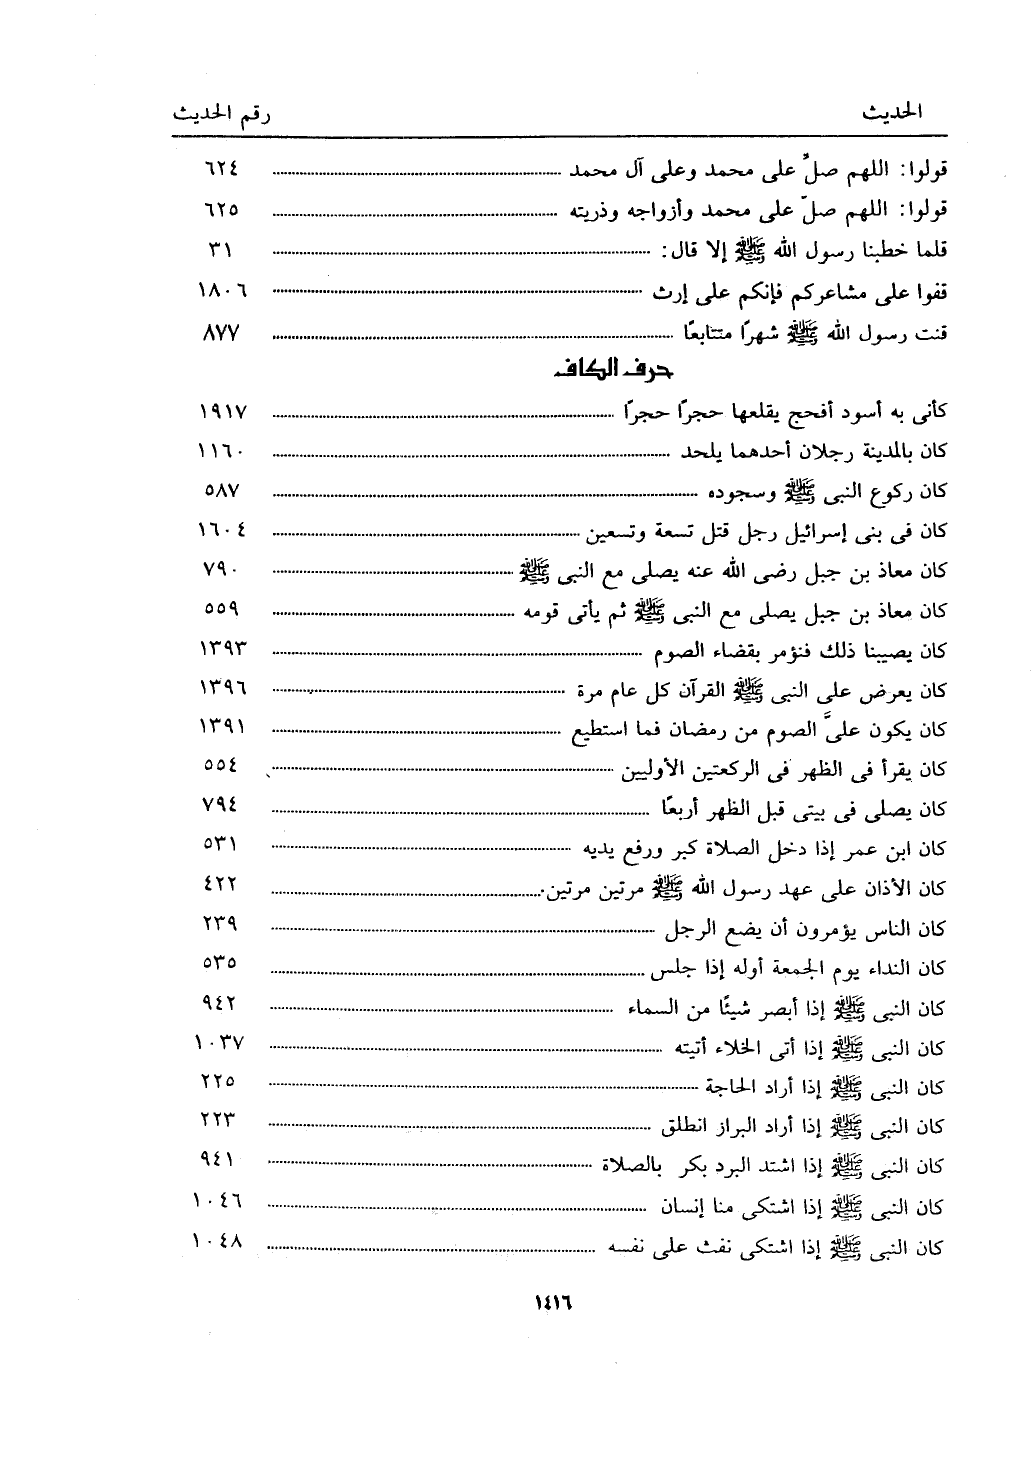 الحديث رقم الحديث
قولوا: اللهم صلِّ على محمد وعلى آل محمد ........ ٦٢٤
قولوا: اللهم صلّ على محمد وأزواجه وذريته ........ ٦٢٥
قلما خطبنا رسول الله ﷺ إلا قال: ........ ٣١
قفوا على مشاعركم فإنكم على إرث ........ ١٨٠٦
قنت رسول الله ﷺ شهرًا متتابعًا ........ ٨٧٧
حرف الكاف
كأنى به أسود أفحج يقلعها حجرًا حجرًا ........ ١٩١٧
كان بالمدينة رجلان أحدهما يلحد ........ ١١٦٠
كان ركوع النبى ﷺ وسجوده ........ ٥٨٧
كان فى بنى إسرائيل رجل قتل تسعة وتسعين ........ ١٦٠٤
كان معاذ بن جبل رضى الله عنه يصلى مع النبى ﷺ ........ ٧٩٠
كان معاذ بن جبل يصلى مع النبى ﷺ ثم يأتى قومه ........ ٥٥٩
كان يصيبنا ذلك فنؤمر بقضاء الصوم ........ ١٣٩٣
كان يعرض على النبى ﷺ القرآن كل عام مرة ........ ١٣٩٦
كان يكون علىَّ الصوم من رمضان فما استطيع ........ ١٣٩١
كان يقرأ فى الظهر فى الركعتين الأوليين ........ ٥٥٤
كان يصلى فى بيتى قبل الظهر أربعًا ........ ٧٩٤
كان ابن عمر إذا دخل الصلاة كبر ورفع يديه ........ ٥٣١
كان الأذان على عهد رسول الله ﷺ مرتين مرتين. ........ ٤٢٢
كان الناس يؤمرون أن يضع الرجل ........ ٢٣٩
كان النداء يوم الجمعة أوله إذا جلس ........ ٥٣٥
كان النبى ﷺ إذا أبصر شيئًا من السماء ........ ٩٤٢
كان النبى ﷺ إذا أتى الخلاء أتيته ........ ١٠٣٧
كان النبى ﷺ إذا أراد الحاجة ........ ٢٢٥
كان النبى ﷺ إذا أراد البراز انطلق ........ ٢٢٣
كان النبى ﷺ إذا اشتد البرد بكر بالصلاة ........ ٩٤١
كان النبى ﷺ إذا اشتكى منا إنسان ........ ١٠٤٦
كان النبى ﷺ إذا اشتكى نفث على نفسه ........ ١٠٤٨
١٤١٦